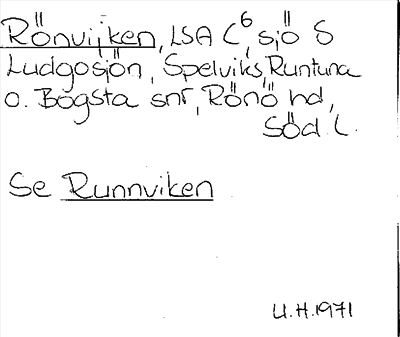 Rönvijken, LSA C6, sjö S
Ludgosjön, Spelviks, Runtuna
o. Bogsta snr, Rönö hd,
Söd l.
Se Runnviken
U.H. 1971